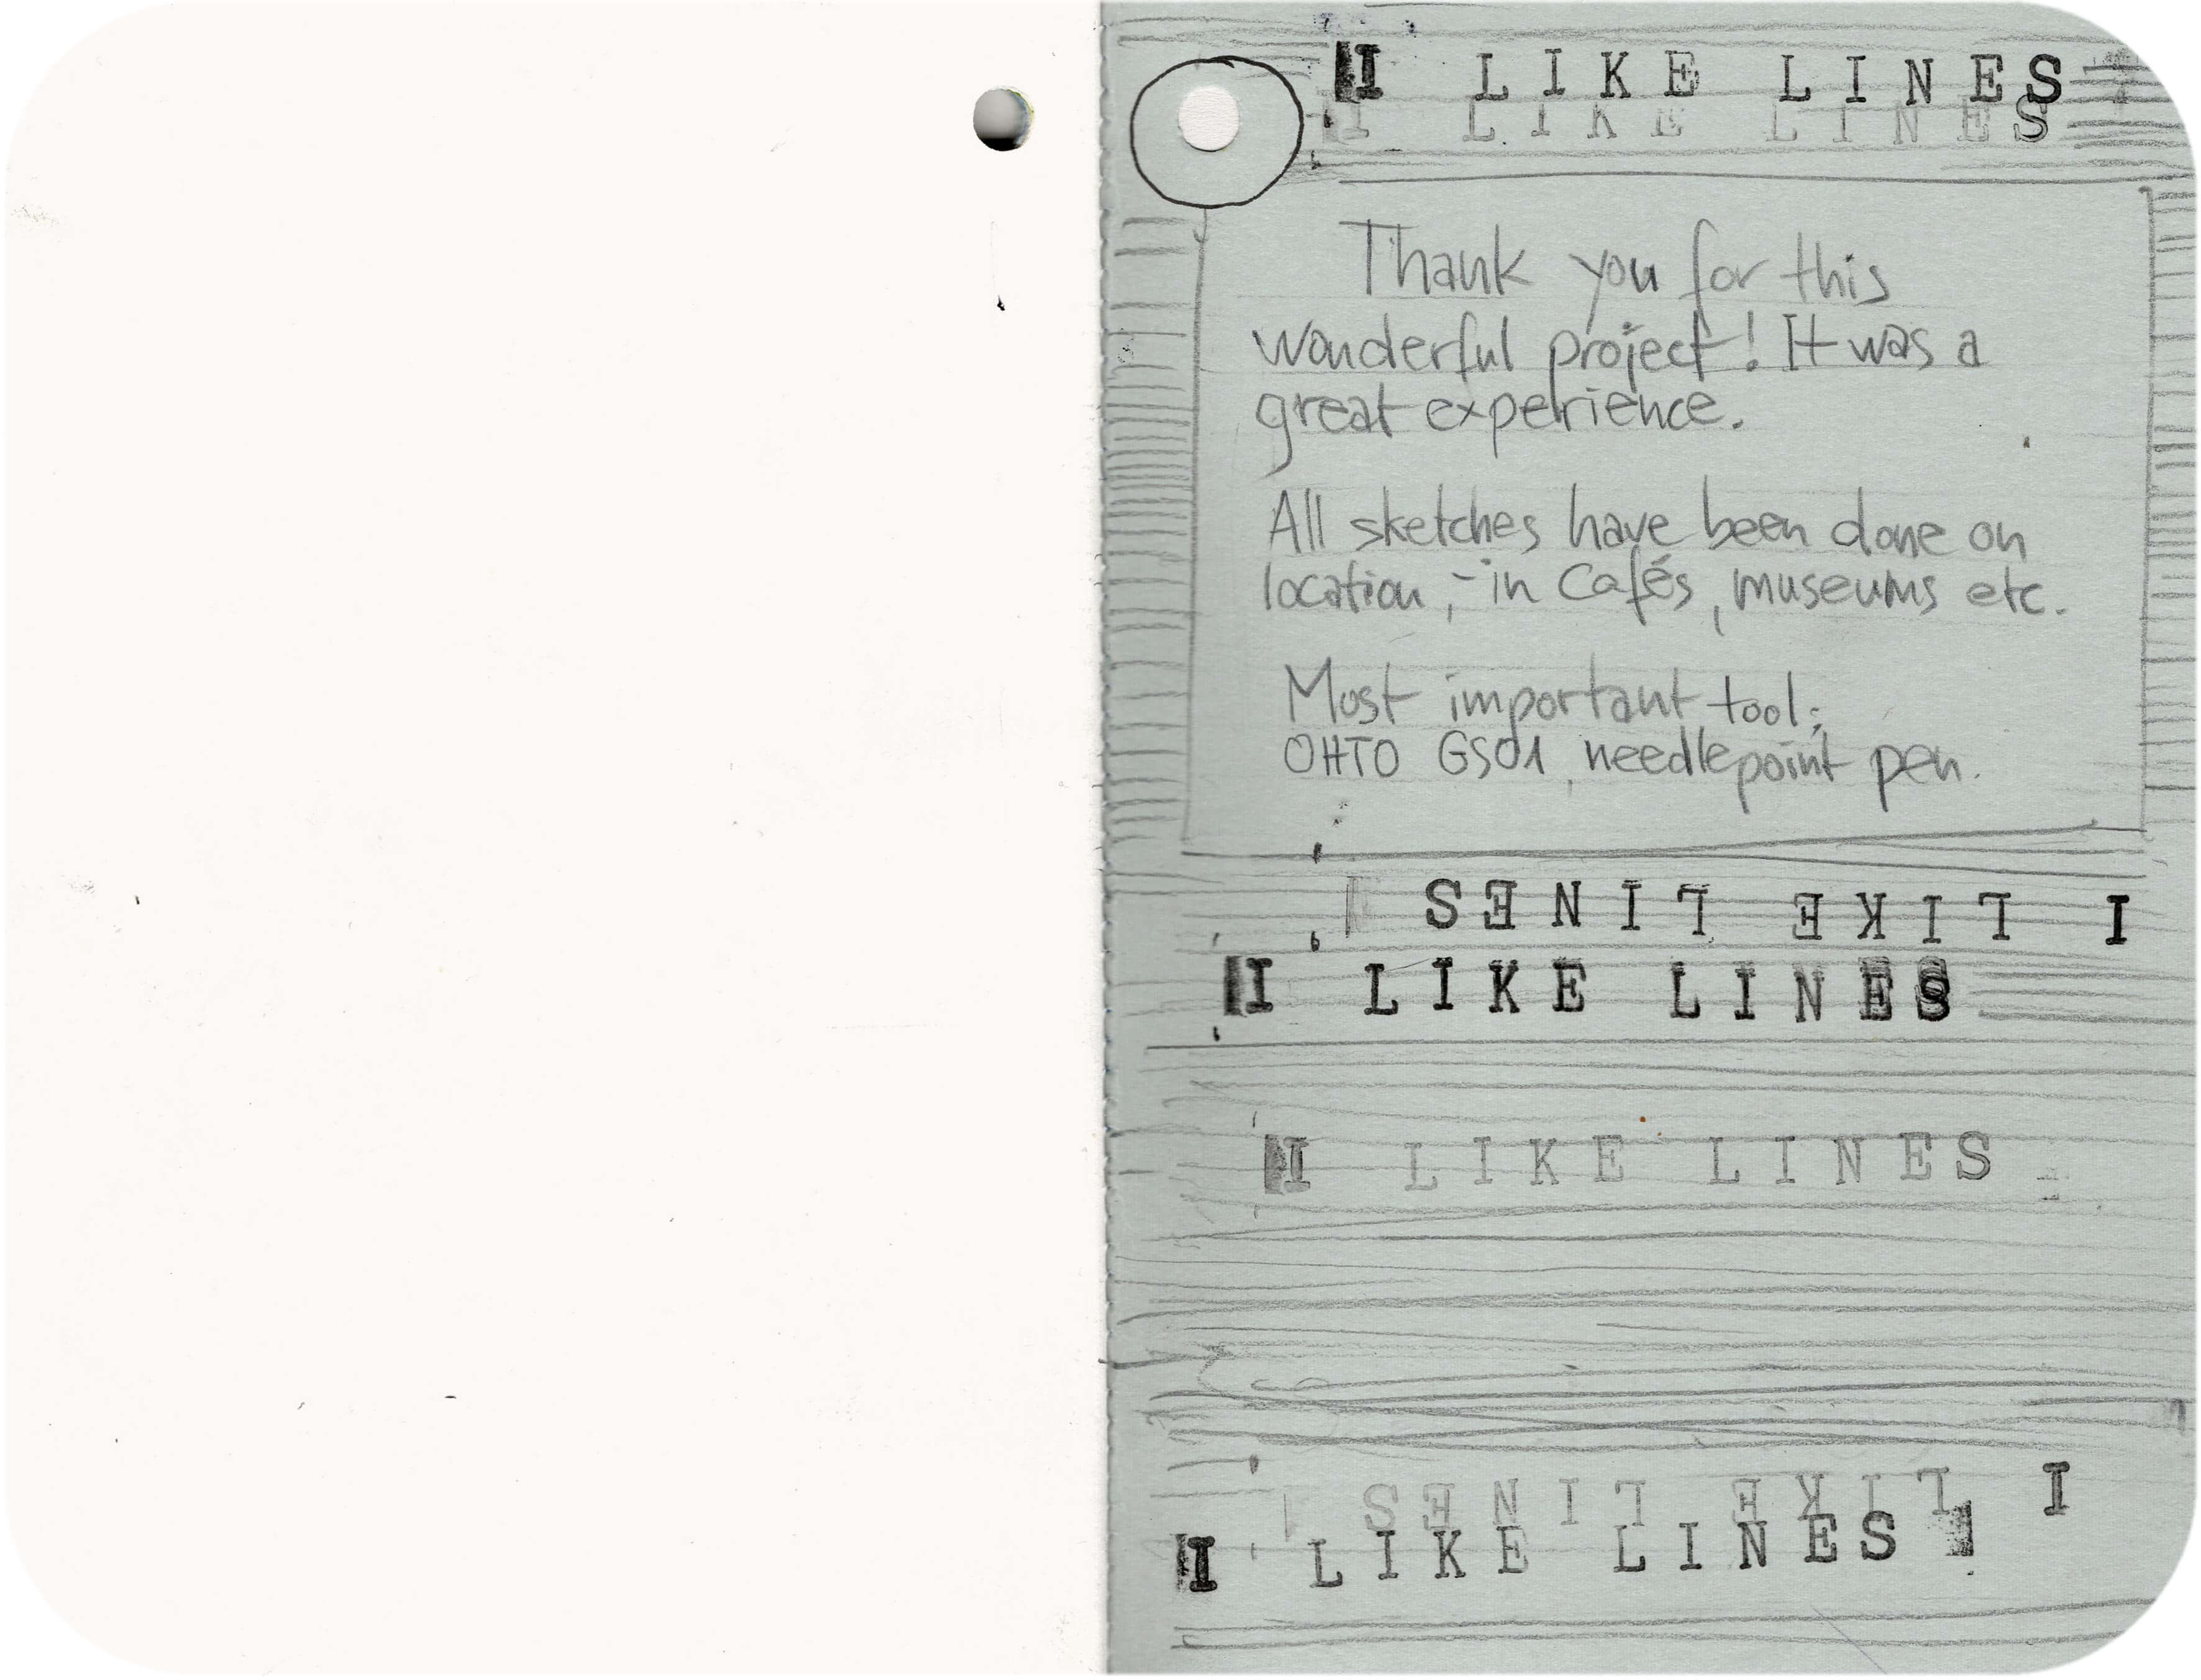 I LIKE LINES
I LIKE LINES
Thank you for this
wonderful project! It was a
great experience.
All sketches have been done on
location, - in Cafés, museums etc.
Most important tool:
OHTO GS01, needlepoint pen.
I LIKE LINES
I LIKE LINES
I LIKE LINES
I LIKE LINES
I LIKE LINES